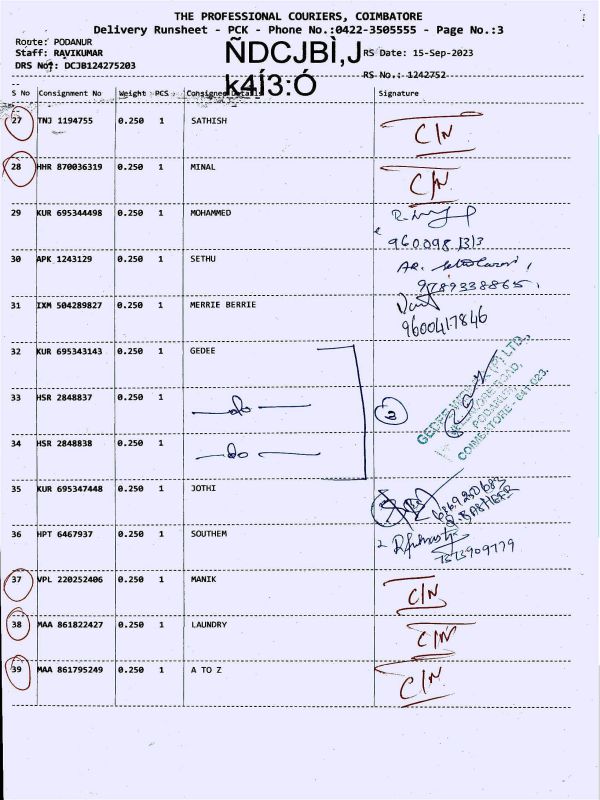 THE PROFESSIONAL COURIERS, COIMBATORE
Delivery Runsheet - PCK - Phone No.:0422-3505555 - Page No.:3
Route: PODANUR
Staff: RAVIKUMAR
DRS No†: DCJB124275203
ÑDCJBÌ,J
k4Í3:Ó
RS Date: 15-Sep-2023
RS No.: 1242752
S No Consignment No Weight PCS Consignee Details Signature
27 TNJ 1194755 0.250 1 SATHISH C/N
28 HHR 870036319 0.250 1 MINAL C/N
29 KUR 695344498 0.250 1 MOHAMMED
30 APK 1243129 0.250 1 SETHU
9789338865
31 IXM 504289827 0.250 1 MERRIE BERRIE
9600417846
32 KUR 695343143 0.250 1 GEDEE
33 HSR 2848837 0.250 1 —do— 3
34 HSR 2848838 0.250 1 —do—
COIMBATORE - 641 023.
35 KUR 695347448 0.250 1 JOTHI
36 HPT 6467937 0.250 1 SOUTHEM
37 VPL 220252406 0.250 1 MANIK C/N
38 MAA 861822427 0.250 1 LAUNDRY C/N
39 MAA 861795249 0.250 1 A TO Z C/N